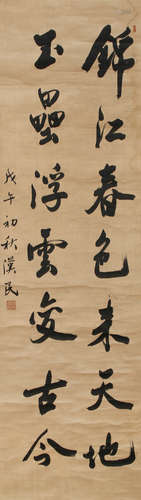 錦江春色来天地
玉壘浮雲变古今
戊午初秋漢民